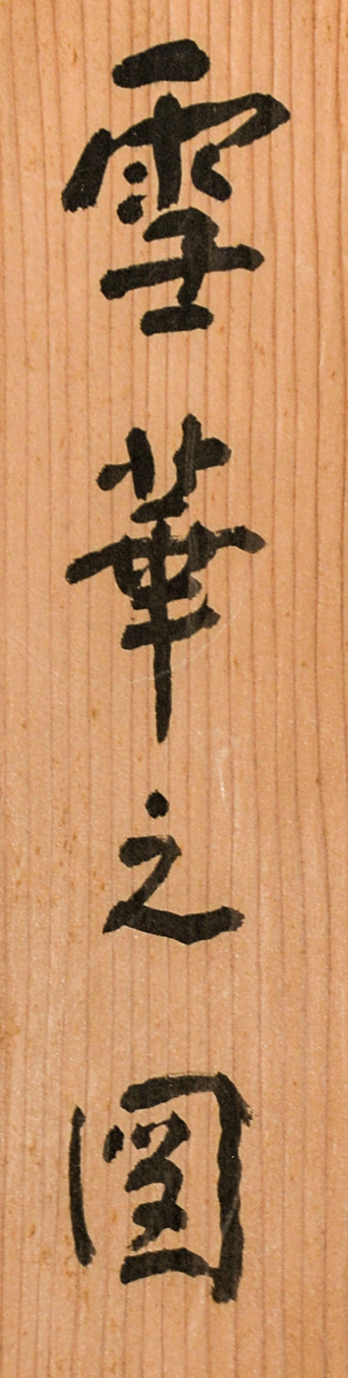 雪華之図